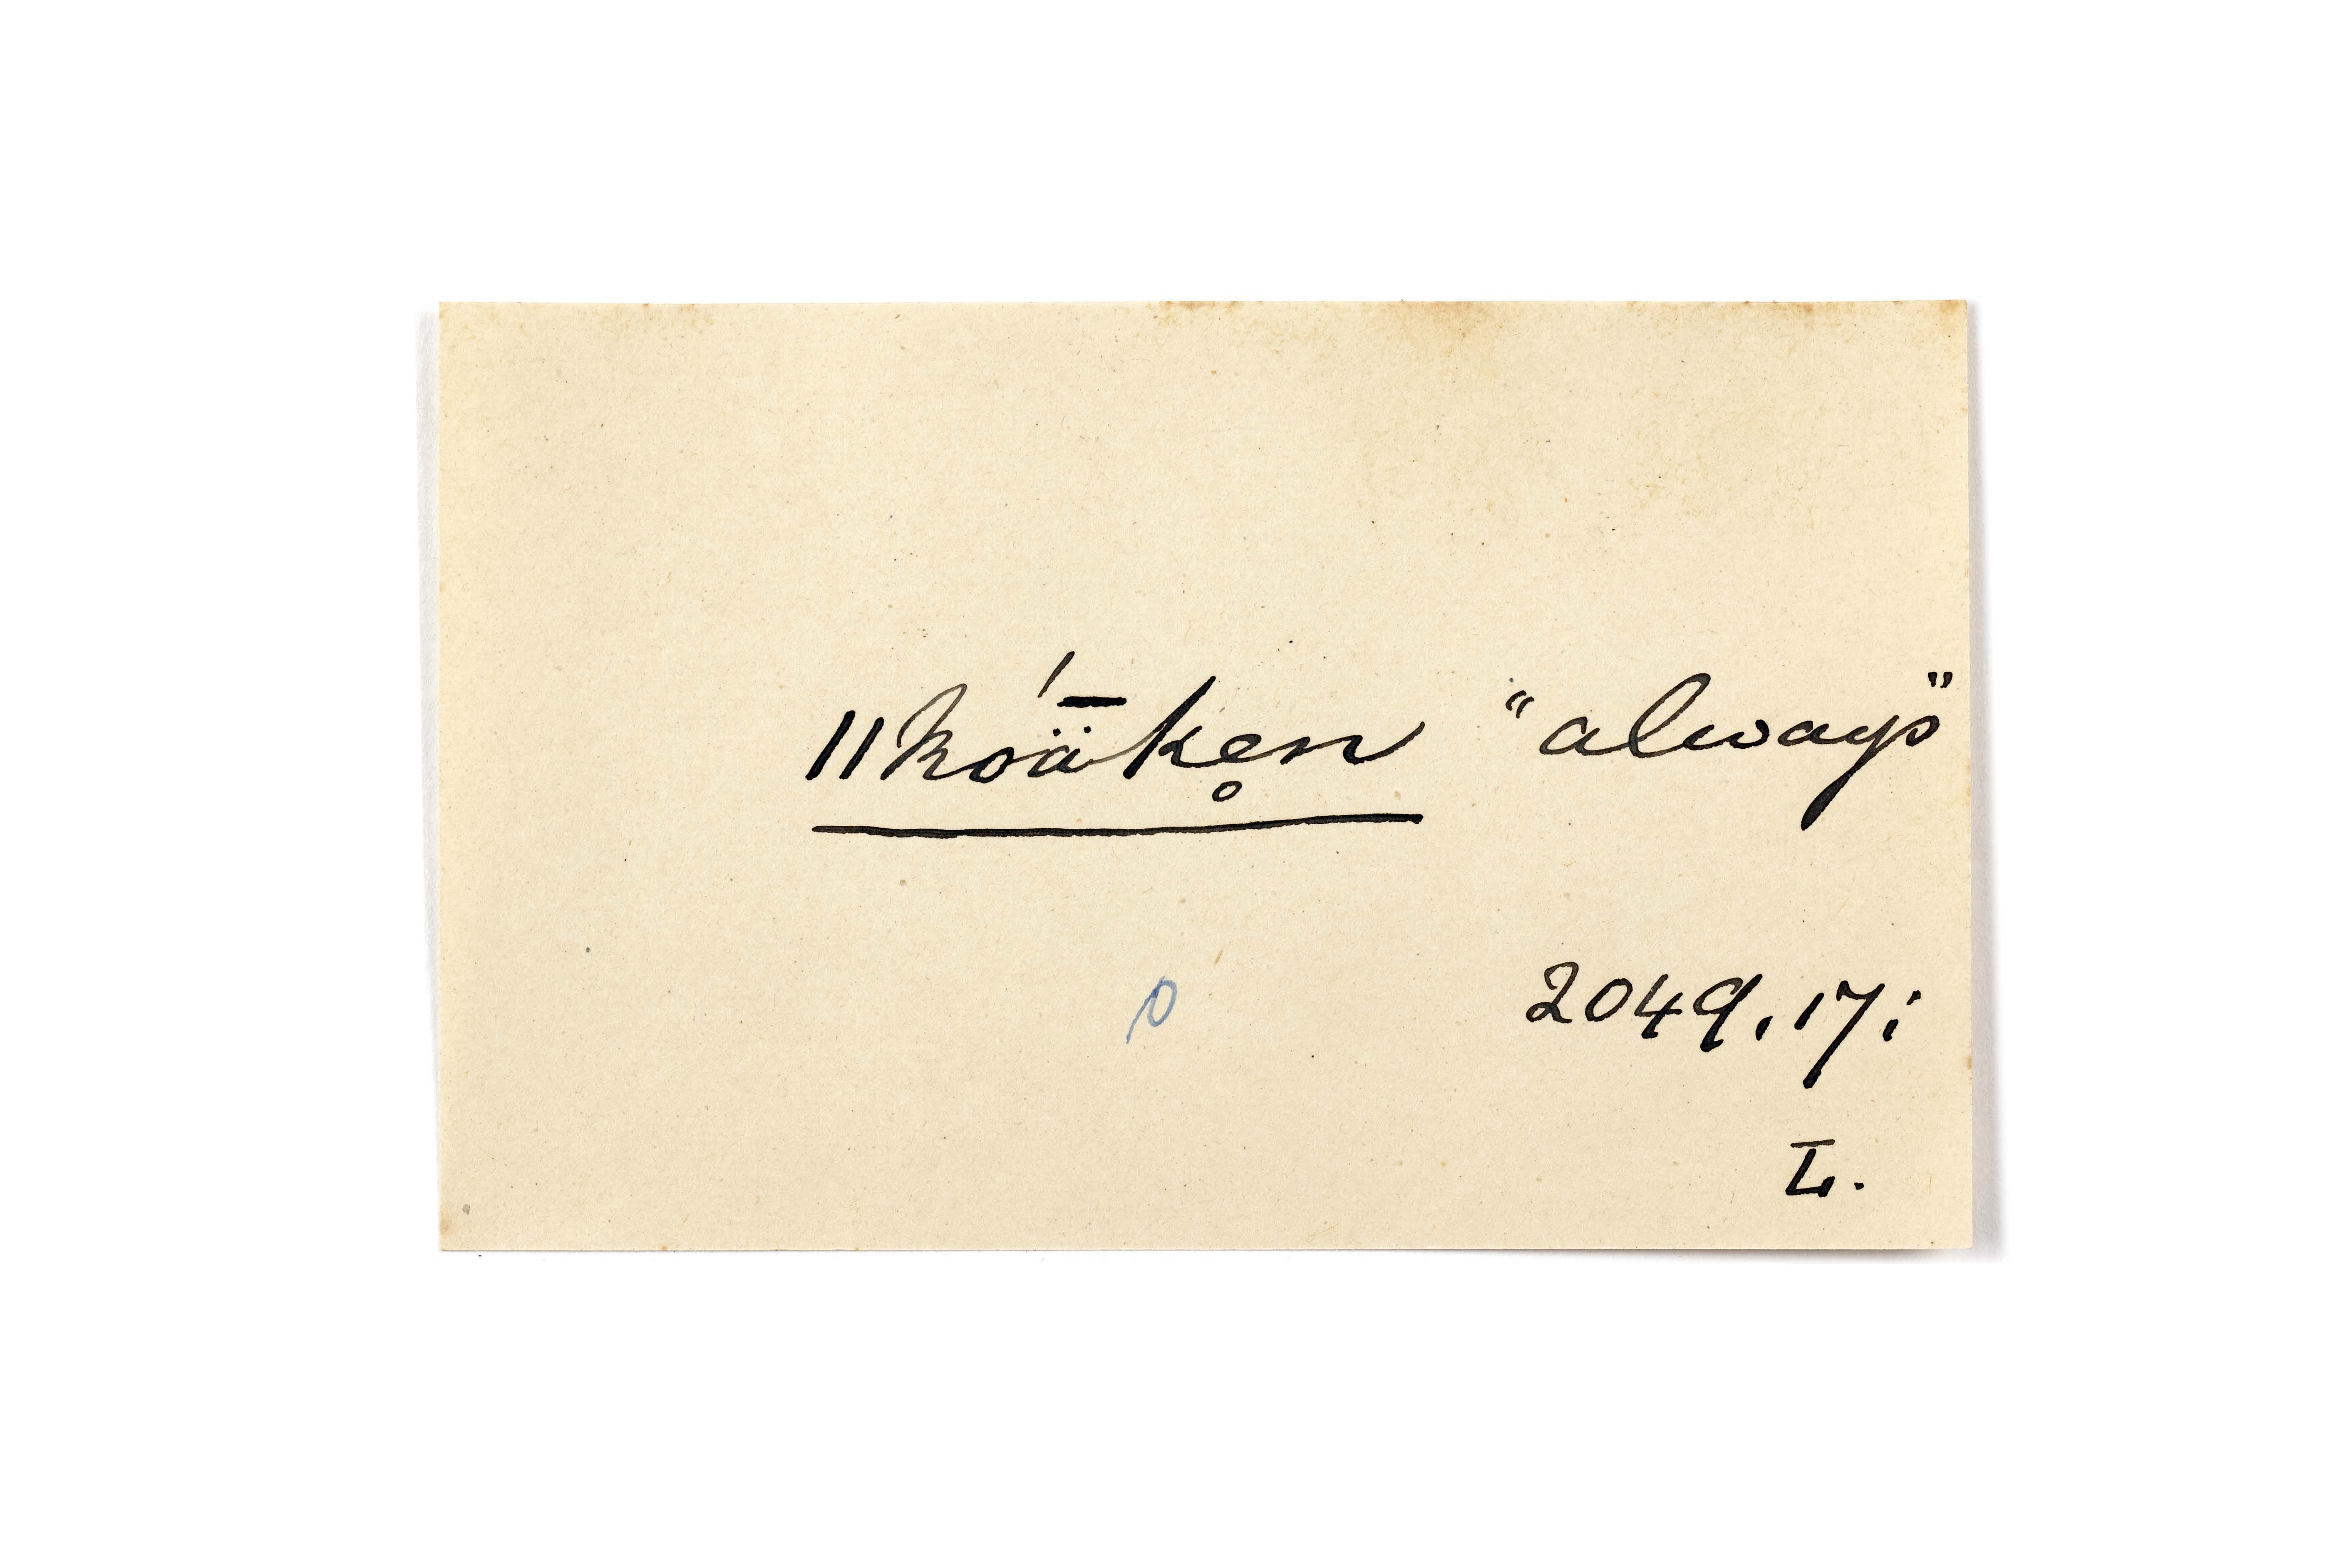 ǁkóǟken̥ "always"
2049. 17;
L.